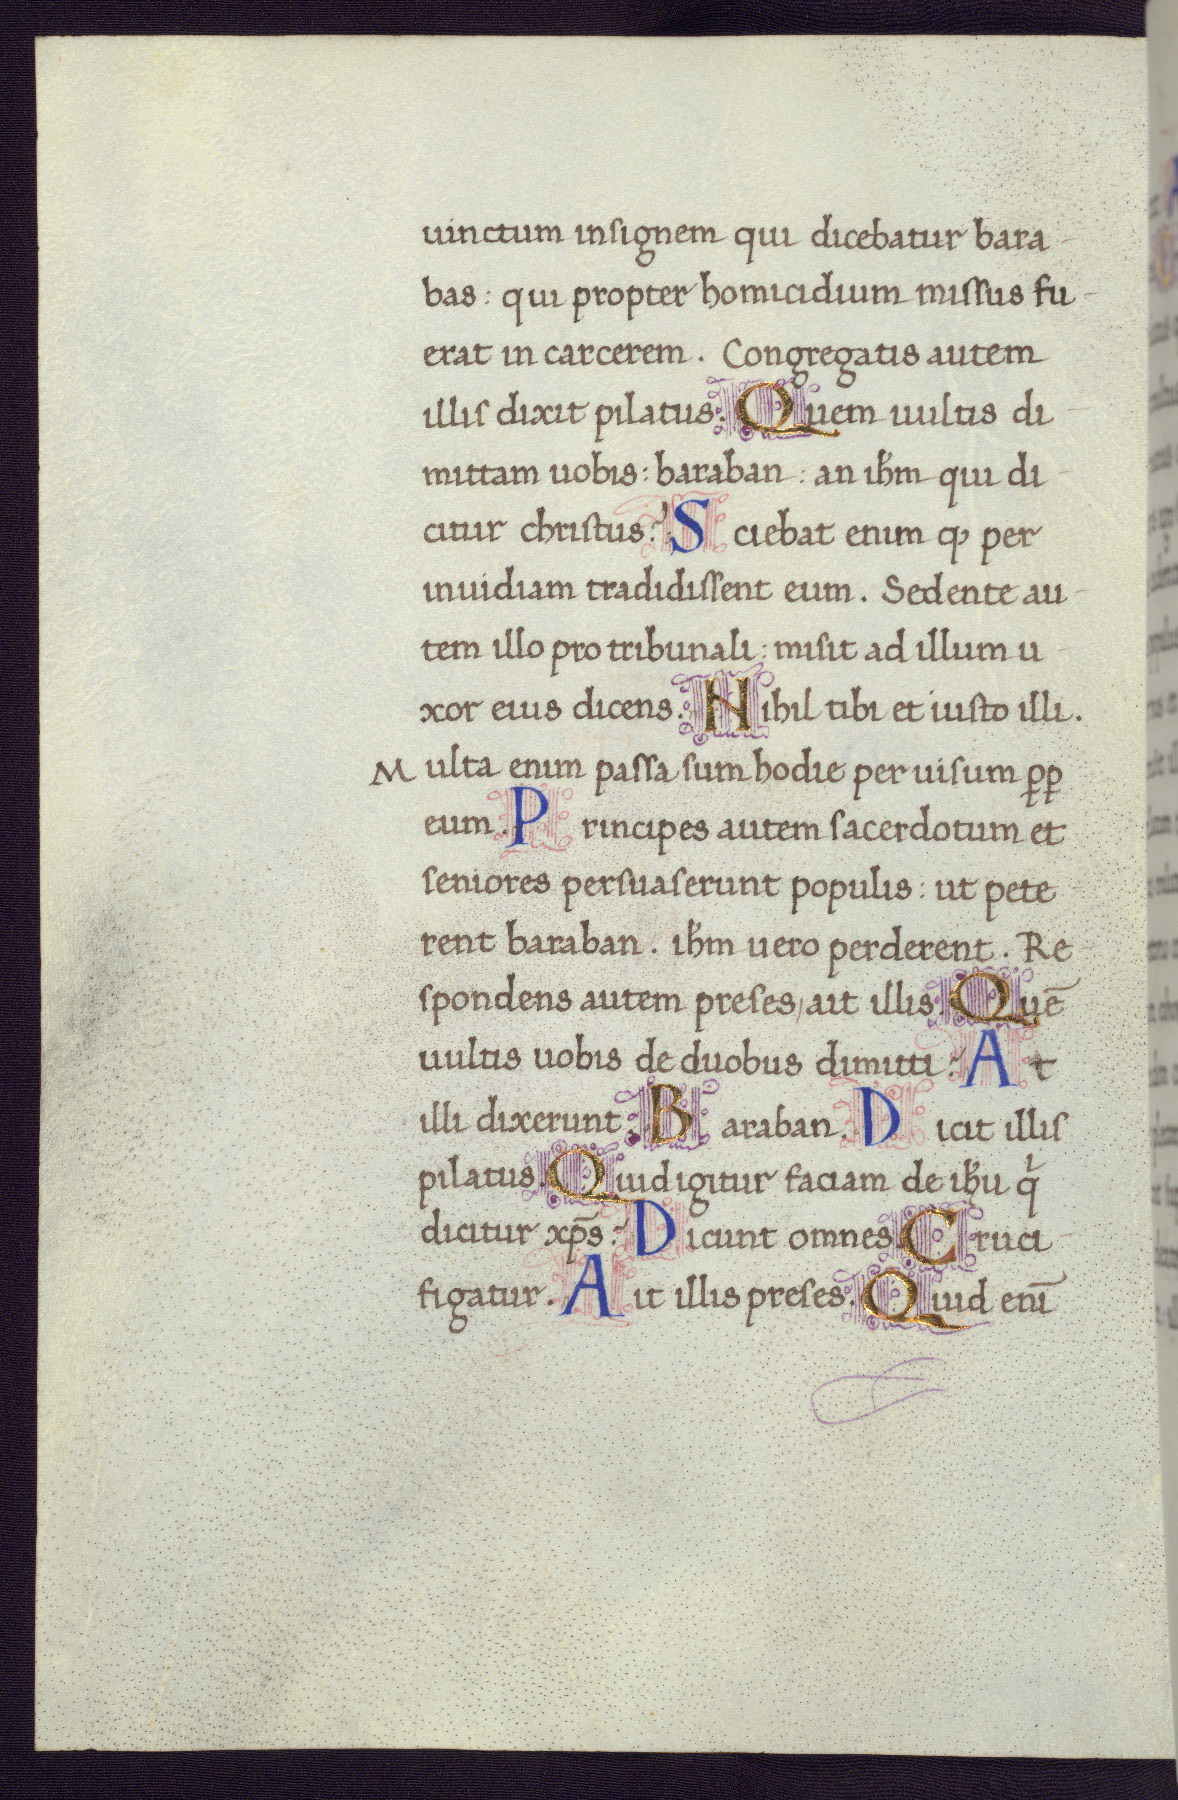 uinctum insignem qui dicebatur bara-
bas: qui propter homicidium missus fu-
erat in carcerem. Congregatis autem
illis dixit pilatus. Quem uultis di-
mittam uobis: baraban: an ih̄m qui di-
citur christus? Sciebat enim ꝙ per
inuidiam tradidissent eum. Sedente au-
tem illo pro tribunali: misit ad illum u-
xor eius dicens. Nihil tibi et iusto illi.
Multa enim passa sum hodie per uisum ꝓp̱
eum. Principes autem sacerdotum et
seniores persuaserunt populis: ut pete-
rent baraban. ih̄m uero perderent. Re-
spondens autem preses, ait illis. Quē
uultis uobis de duobus dimitti? At
illi dixerunt. Baraban. Dicit illis
pilatus. Quid igitur faciam de ih̄u q̇
dicitur xp̄s? Dicunt omnes. Cruci-
figatur. Ait illis preses. Quid enī